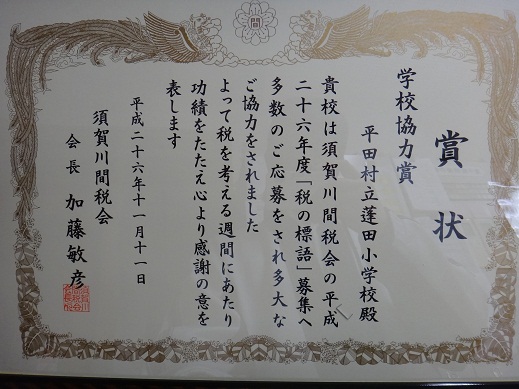 間
賞状
学校協力賞
平田村立蓬田小学校殿
貴校は須賀川間税会の平成
二十六年度「税の標語」募集へ
多数のご応募をされ多大な
ご協力をされました
よって税を考える週間にあたり
功績をたたえ心より感謝の意を
表します
平成二十六年十一月十一日
須賀川間税会
会長 加藤敏彦